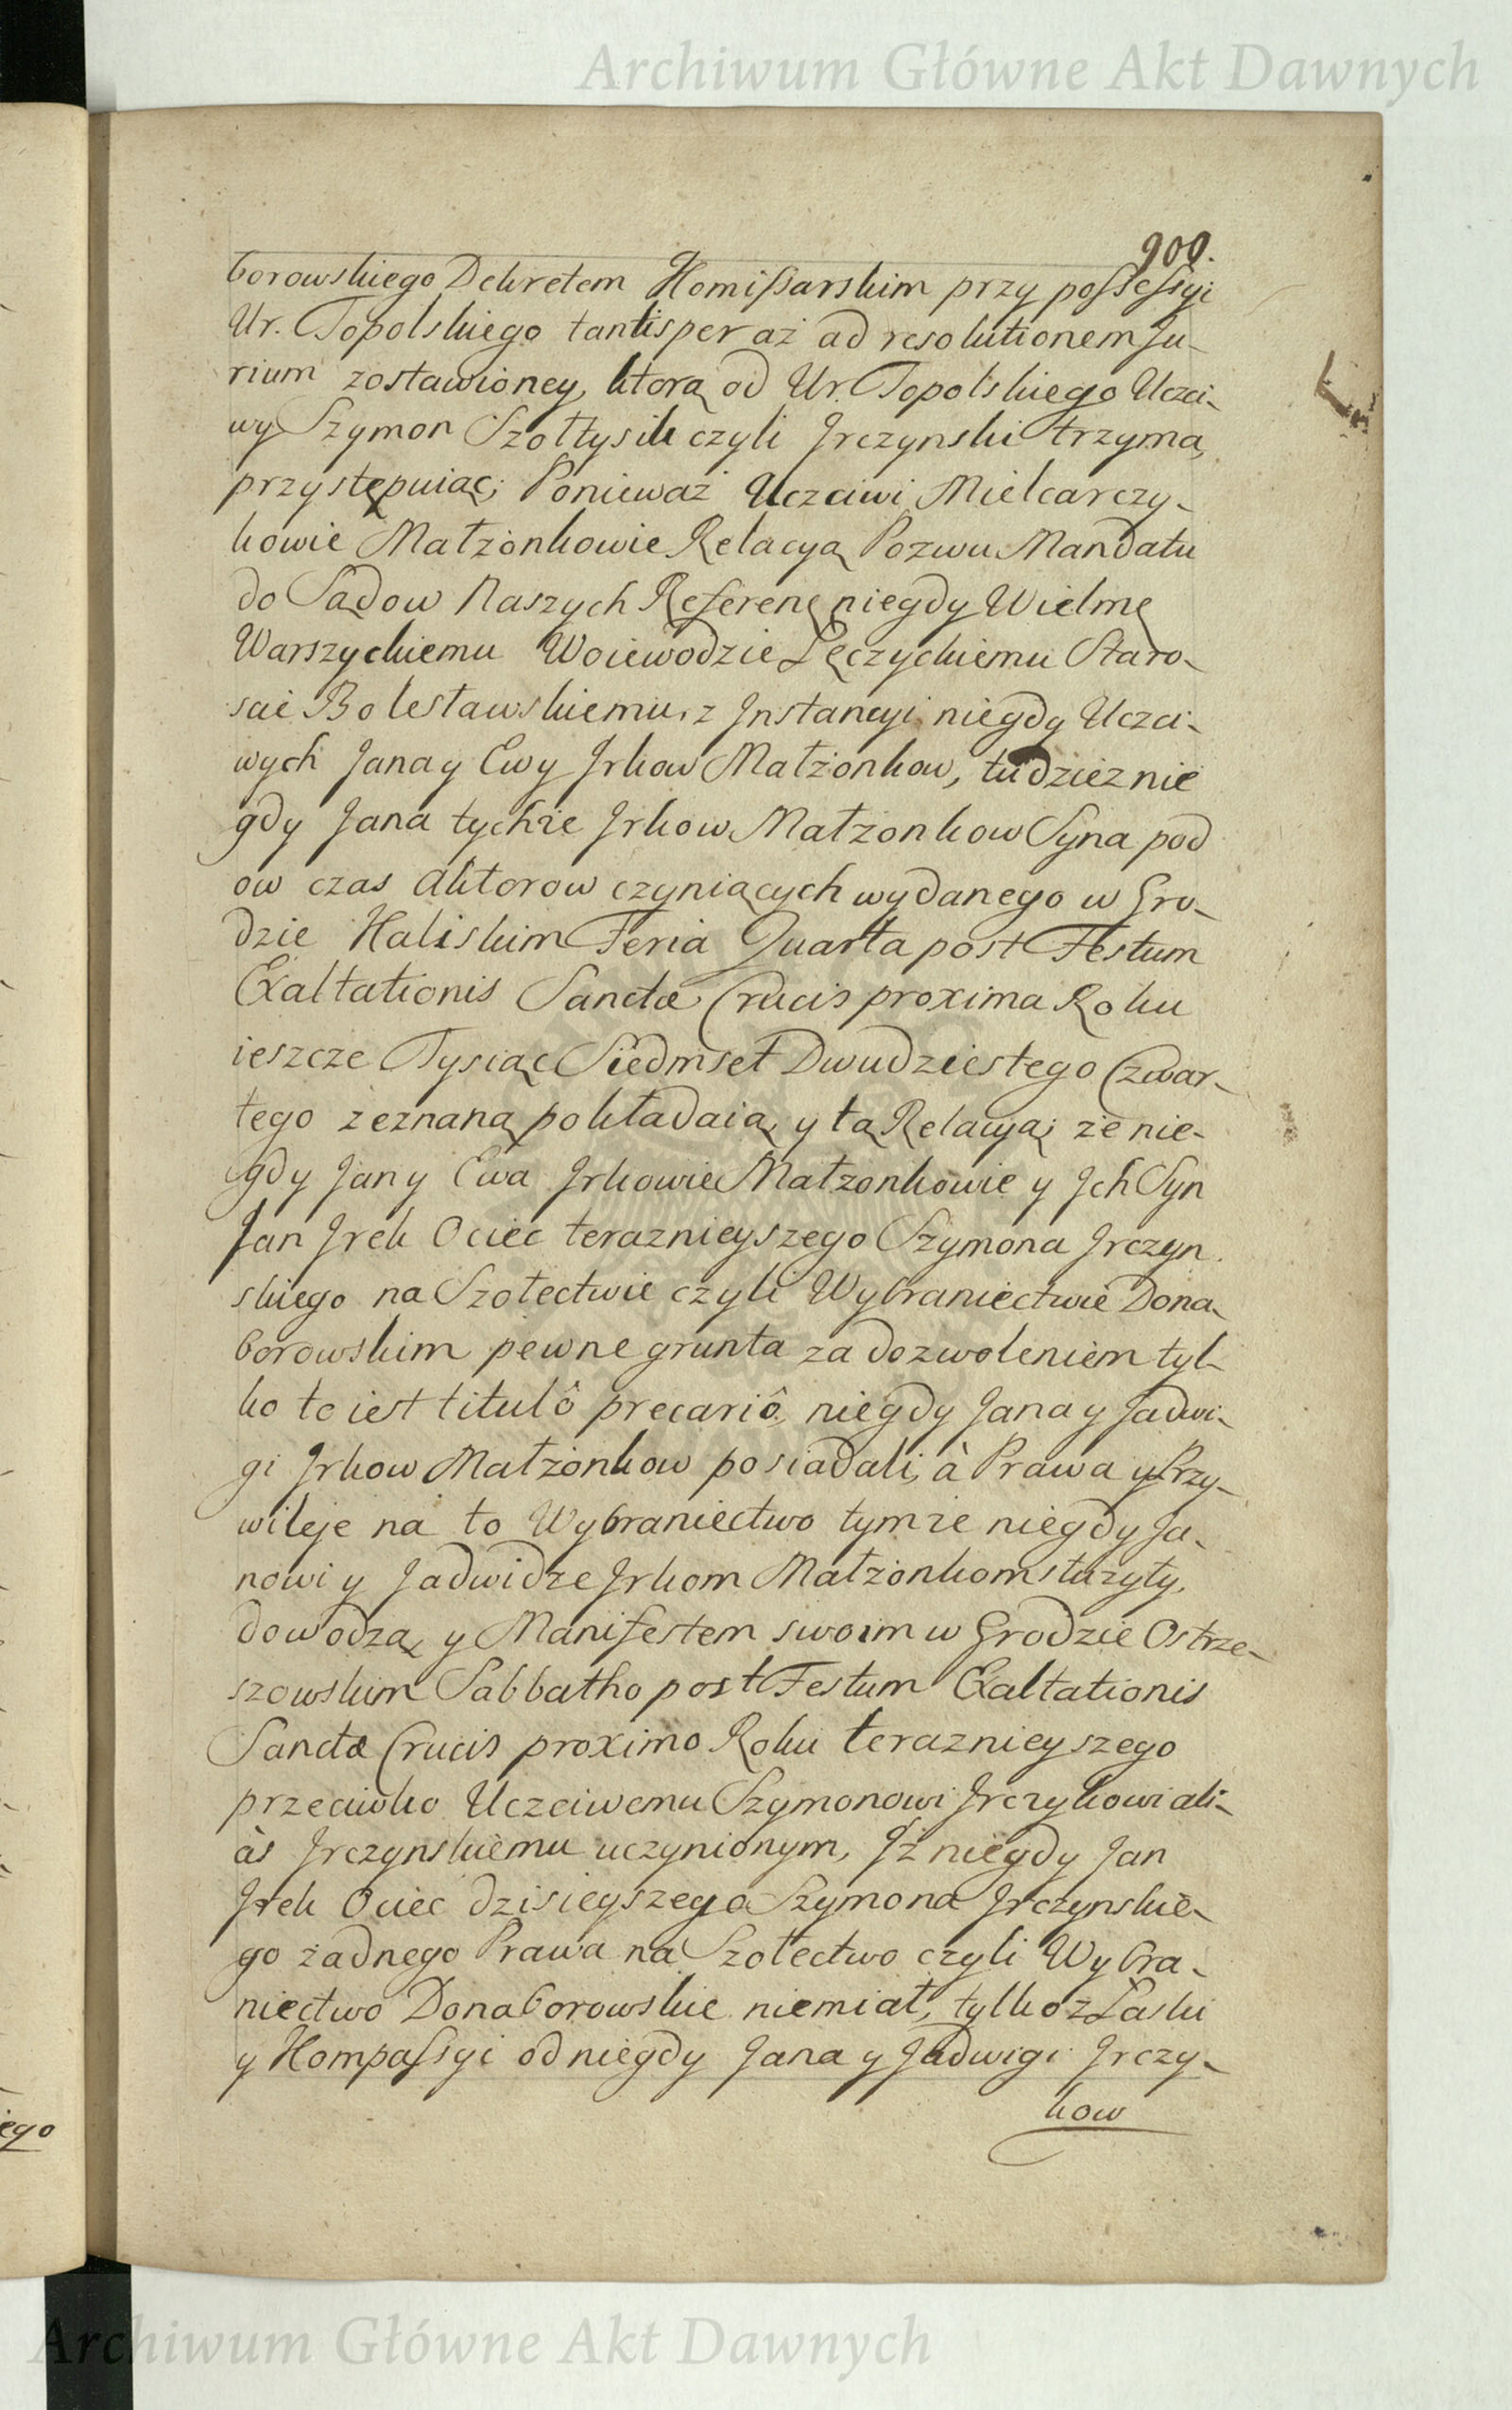 Archiwum Główne Akt Dawnych
900.
borowskiego Dekretem Kommissarskim przy possessyi
Ur. Topolskiego tantisper aż ad resolutionem Ju-
rium zostawioney, ktorą od Ur. Topolskiego Uczci-
wy Szymon Szołtysik czyli Jrczynski trzyma,
przystępuiąc; Ponieważ Uczciwi Mielcarczy-
kowie Małżonkowie Relacyą Pozwu Mandatu
do Sądow Naszych Referenę niegdy Wielmę
Warszyckiemu Woiewodzie Łęczyckiemu Staro-
scie Bolesławskiemu, z Jnstancyi niegdy Uczci-
wych Jana y Ewy Jrkow Małżonkow, tudzież nie
gdy Jana tychże Jrkow Małżonkow Syna pod
ow czas Aktorow czyniących wydanego w Gro-
dzie Kaliskim Feria Quarta post Festum
Exaltationis Sanctæ Crucis proxima Roku
ieszcze Tysiąc Siedmset Dwudziestego Czwar-
tego zeznaną pokładaią, y tą Relacyą; że nie-
gdy Jan y Ewa Jrkowie Małżonkowie y Jch Syn
Jan Jrek Ociec teraznieyszego Szymona Jrczyn
skiego na Szołectwie czyli Wybraniectwie Dona-
borowskim pewne grunta za dozwoleniem tyl-
ko to iest titulô precariô, niegdy Jana y Jadwi-
gi Jrkow Małżonkow posiadali, à Prawa y Przy-
wileje na to Wybraniectwo tymże niegdy Ja-
nowi y Jadwidze Jrkom Małżonkom służyły,
dowodzą, y Manifestem swoim w Grodzie Ostrze-
szowskim Sabbatho post Festum Exaltationis
Sanctæ Crucis proximo Roku teraznieyszego
przeciwko Uczciwemu Szymonowi Jrczykowi ali-
às Jrczynskiemu uczynionym, Jż niegdy Jan
Jrek Ociec dzisieyszego Szymona Jrczynskie-
go żadnego Prawa na Szołectwo czyli Wybra-
niectwo Donaborowskie niemiał, tylko z Łaski
y Kompassyi od niegdy Jana y Jadwigi Jrczy-
kow
iego
Archiwum Główne Akt Dawnych